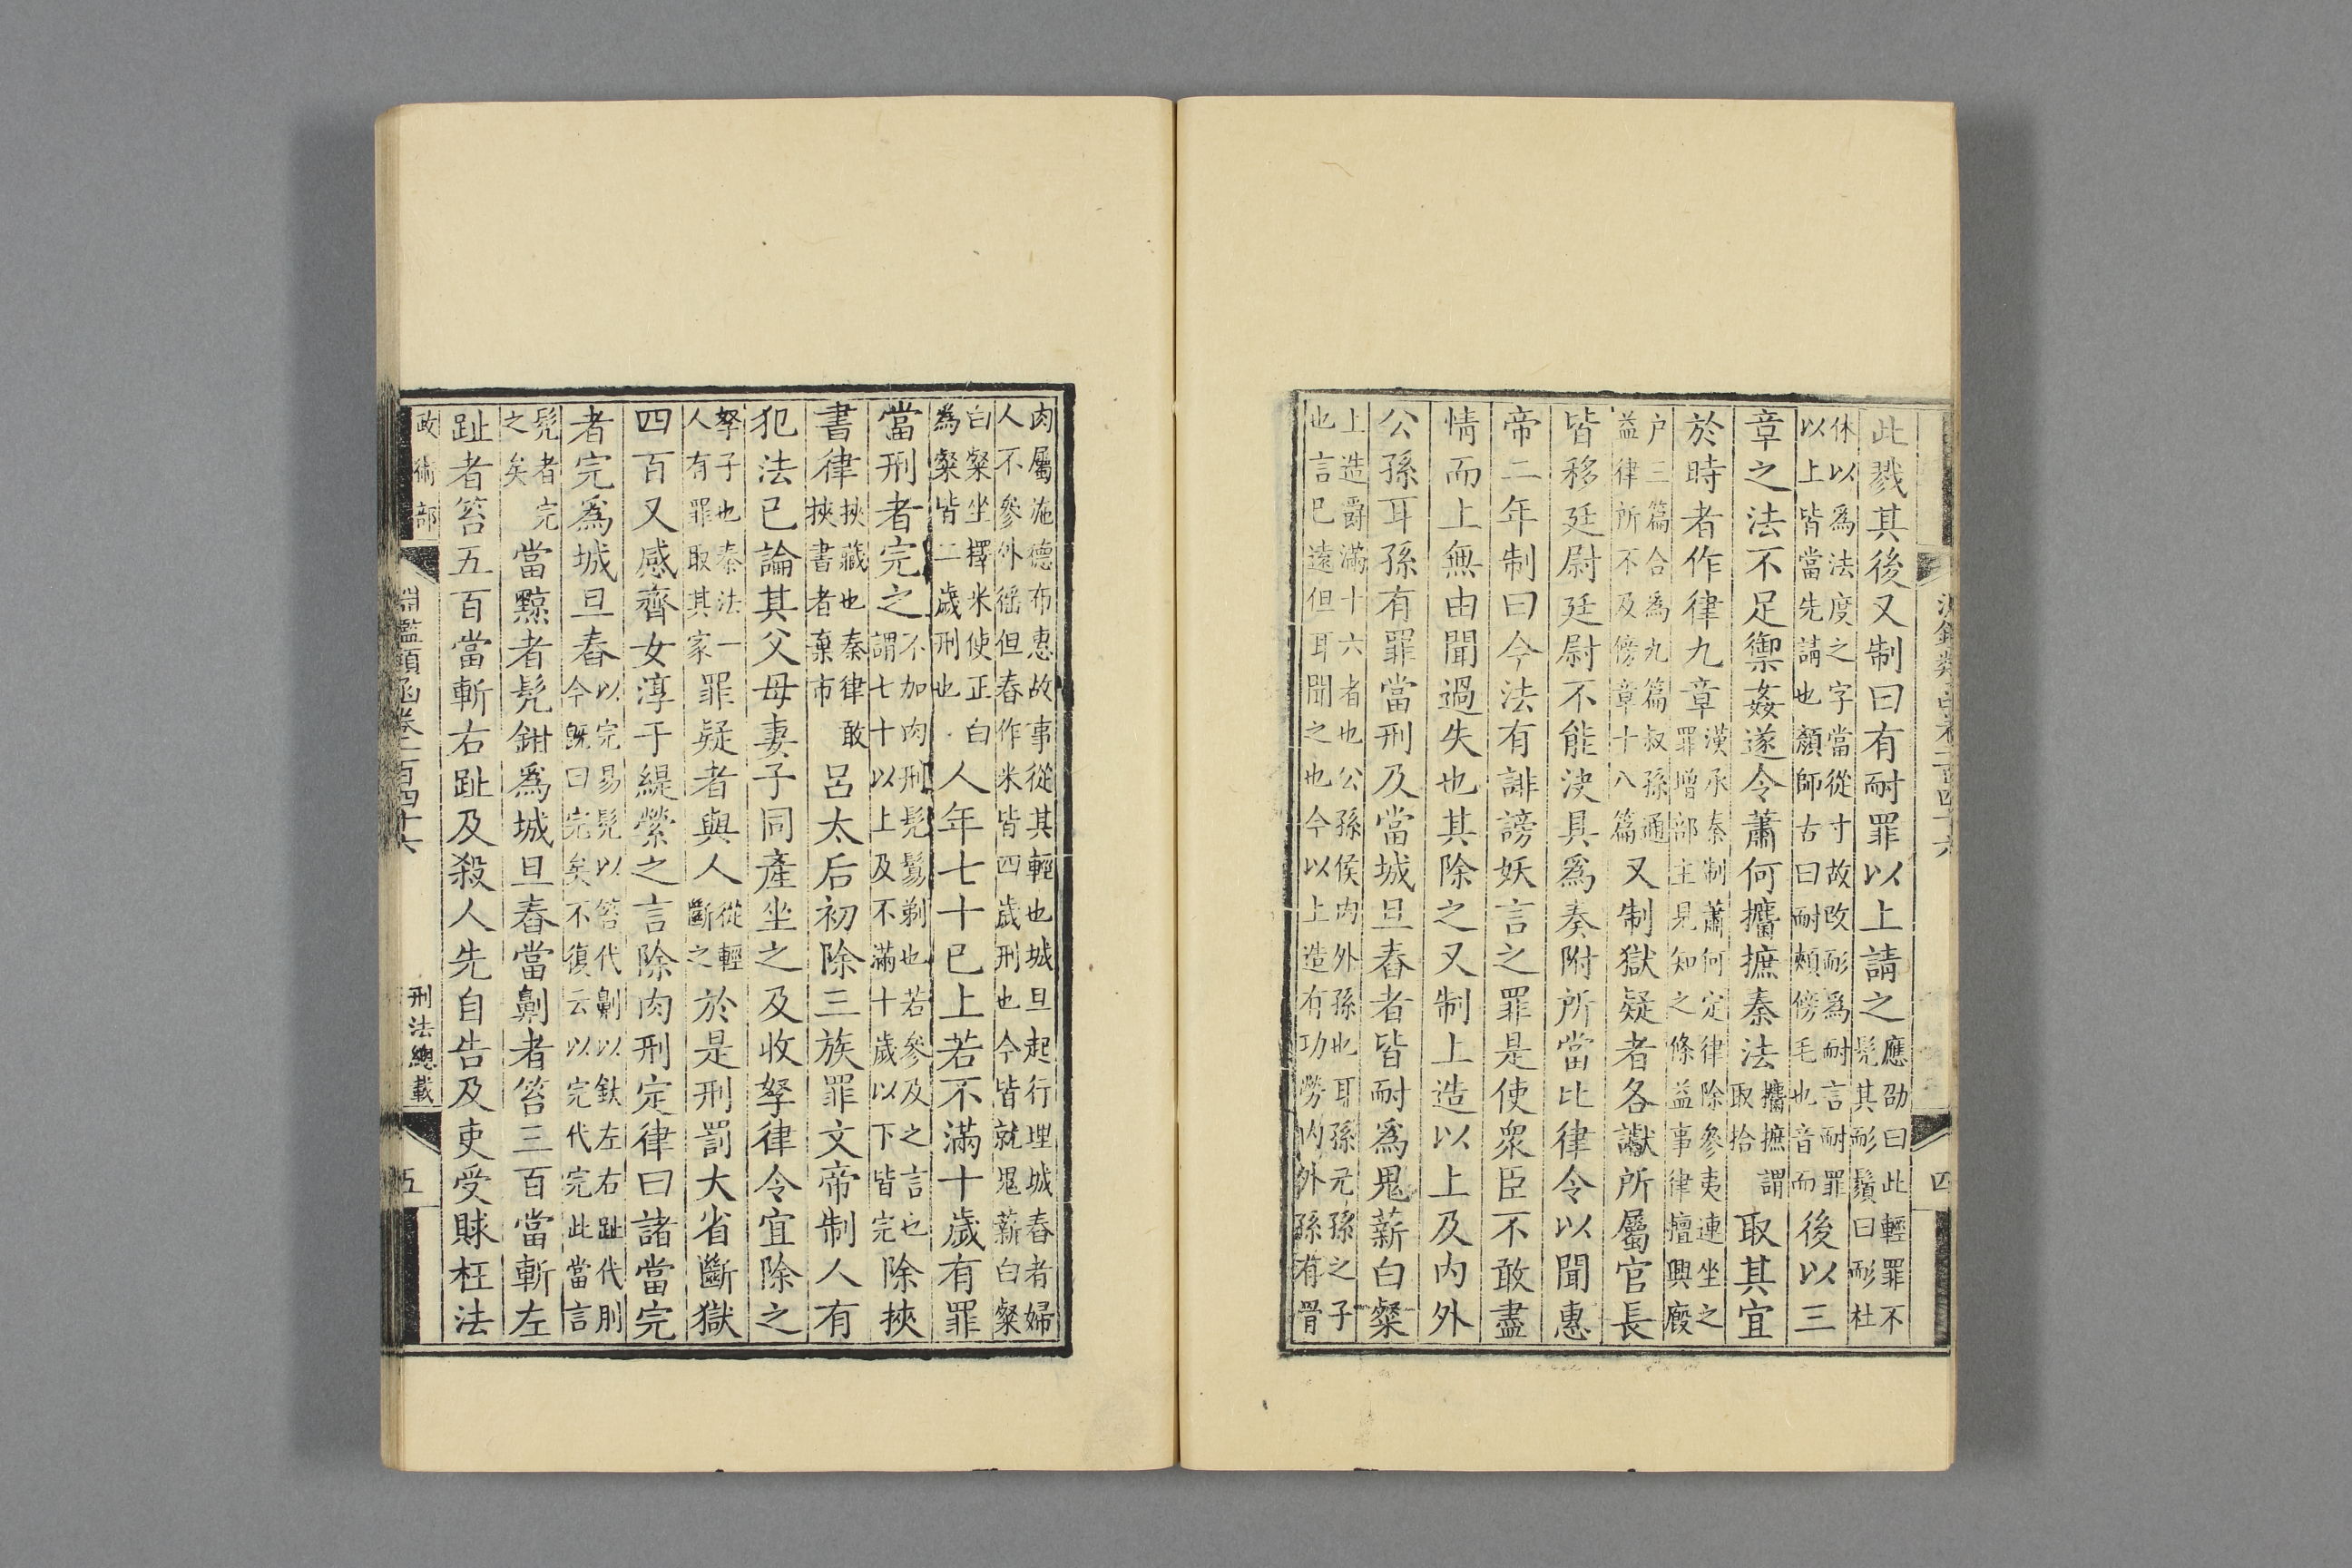 淵鑑類函卷二百四十六 四
此戮其後又制曰有耐罪以上請之應劭曰此輕罪不髡其耏鬚曰耏杜
休以爲法度之字當從寸故改耏爲耐言耐罪以上皆當先請也顏師古曰耐頰傍毛也音而後以三
章之法不足禦姦遂令蕭何攟摭秦法攟摭謂取拾取其宜
於時者作律九章漢承秦制蕭何定律除參夷連坐之罪增部主見知之條益事律擅興廐
户三篇合爲九篇叔孫通益律所不及傍章十八篇又制獄疑者各讞所屬官長
皆移廷尉廷尉不能决具爲奏附所當比律令以聞惠
帝二年制曰今法有誹謗妖言之罪是使衆臣不敢盡
情而上無由聞過失也其除之又制上造以上及内外
公孫耳孫有罪當刑及當城旦舂者皆耐爲鬼薪白粲
上造爵滿十六者也公孫侯内外孫也耳孫元孫之子也言巳遠但耳聞之也今以上造有功勞内外孫有骨
肉屬施德布惠故事從其輕也城旦起行理城舂者婦人不參外徭但舂作米皆四歲刑也今皆就鬼薪白粲
白粲坐擇米使正白為粲皆二歲刑也人年七十巳上若不滿十歲有罪
當刑者完之不加肉刑髡鬄剃也若參及之言也謂七十以上及不滿十歲以下皆完除挾
書律挾藏也秦律敢挾書者棄市呂太后初除三族罪文帝制人有
犯法已論其父母妻子同產坐之及收孥律令宜除之
孥子也秦法一人有罪取其家罪疑者與人從輕斷之於是刑罰大省斷獄
四百又感齊女淳于緹縈之言除肉刑定律曰諸當完
者完爲城旦舂以完易髡以笞代劓以釱左右趾代刖今旣曰完矣不復云以完代完此當言
髡者完之矣當黥者髡鉗爲城旦舂當劓者笞三百當斬左
趾者笞五百當斬右趾及殺人先自告及吏受賕枉法
政術部 淵鑑類函卷二百四十六 刑法總載 五